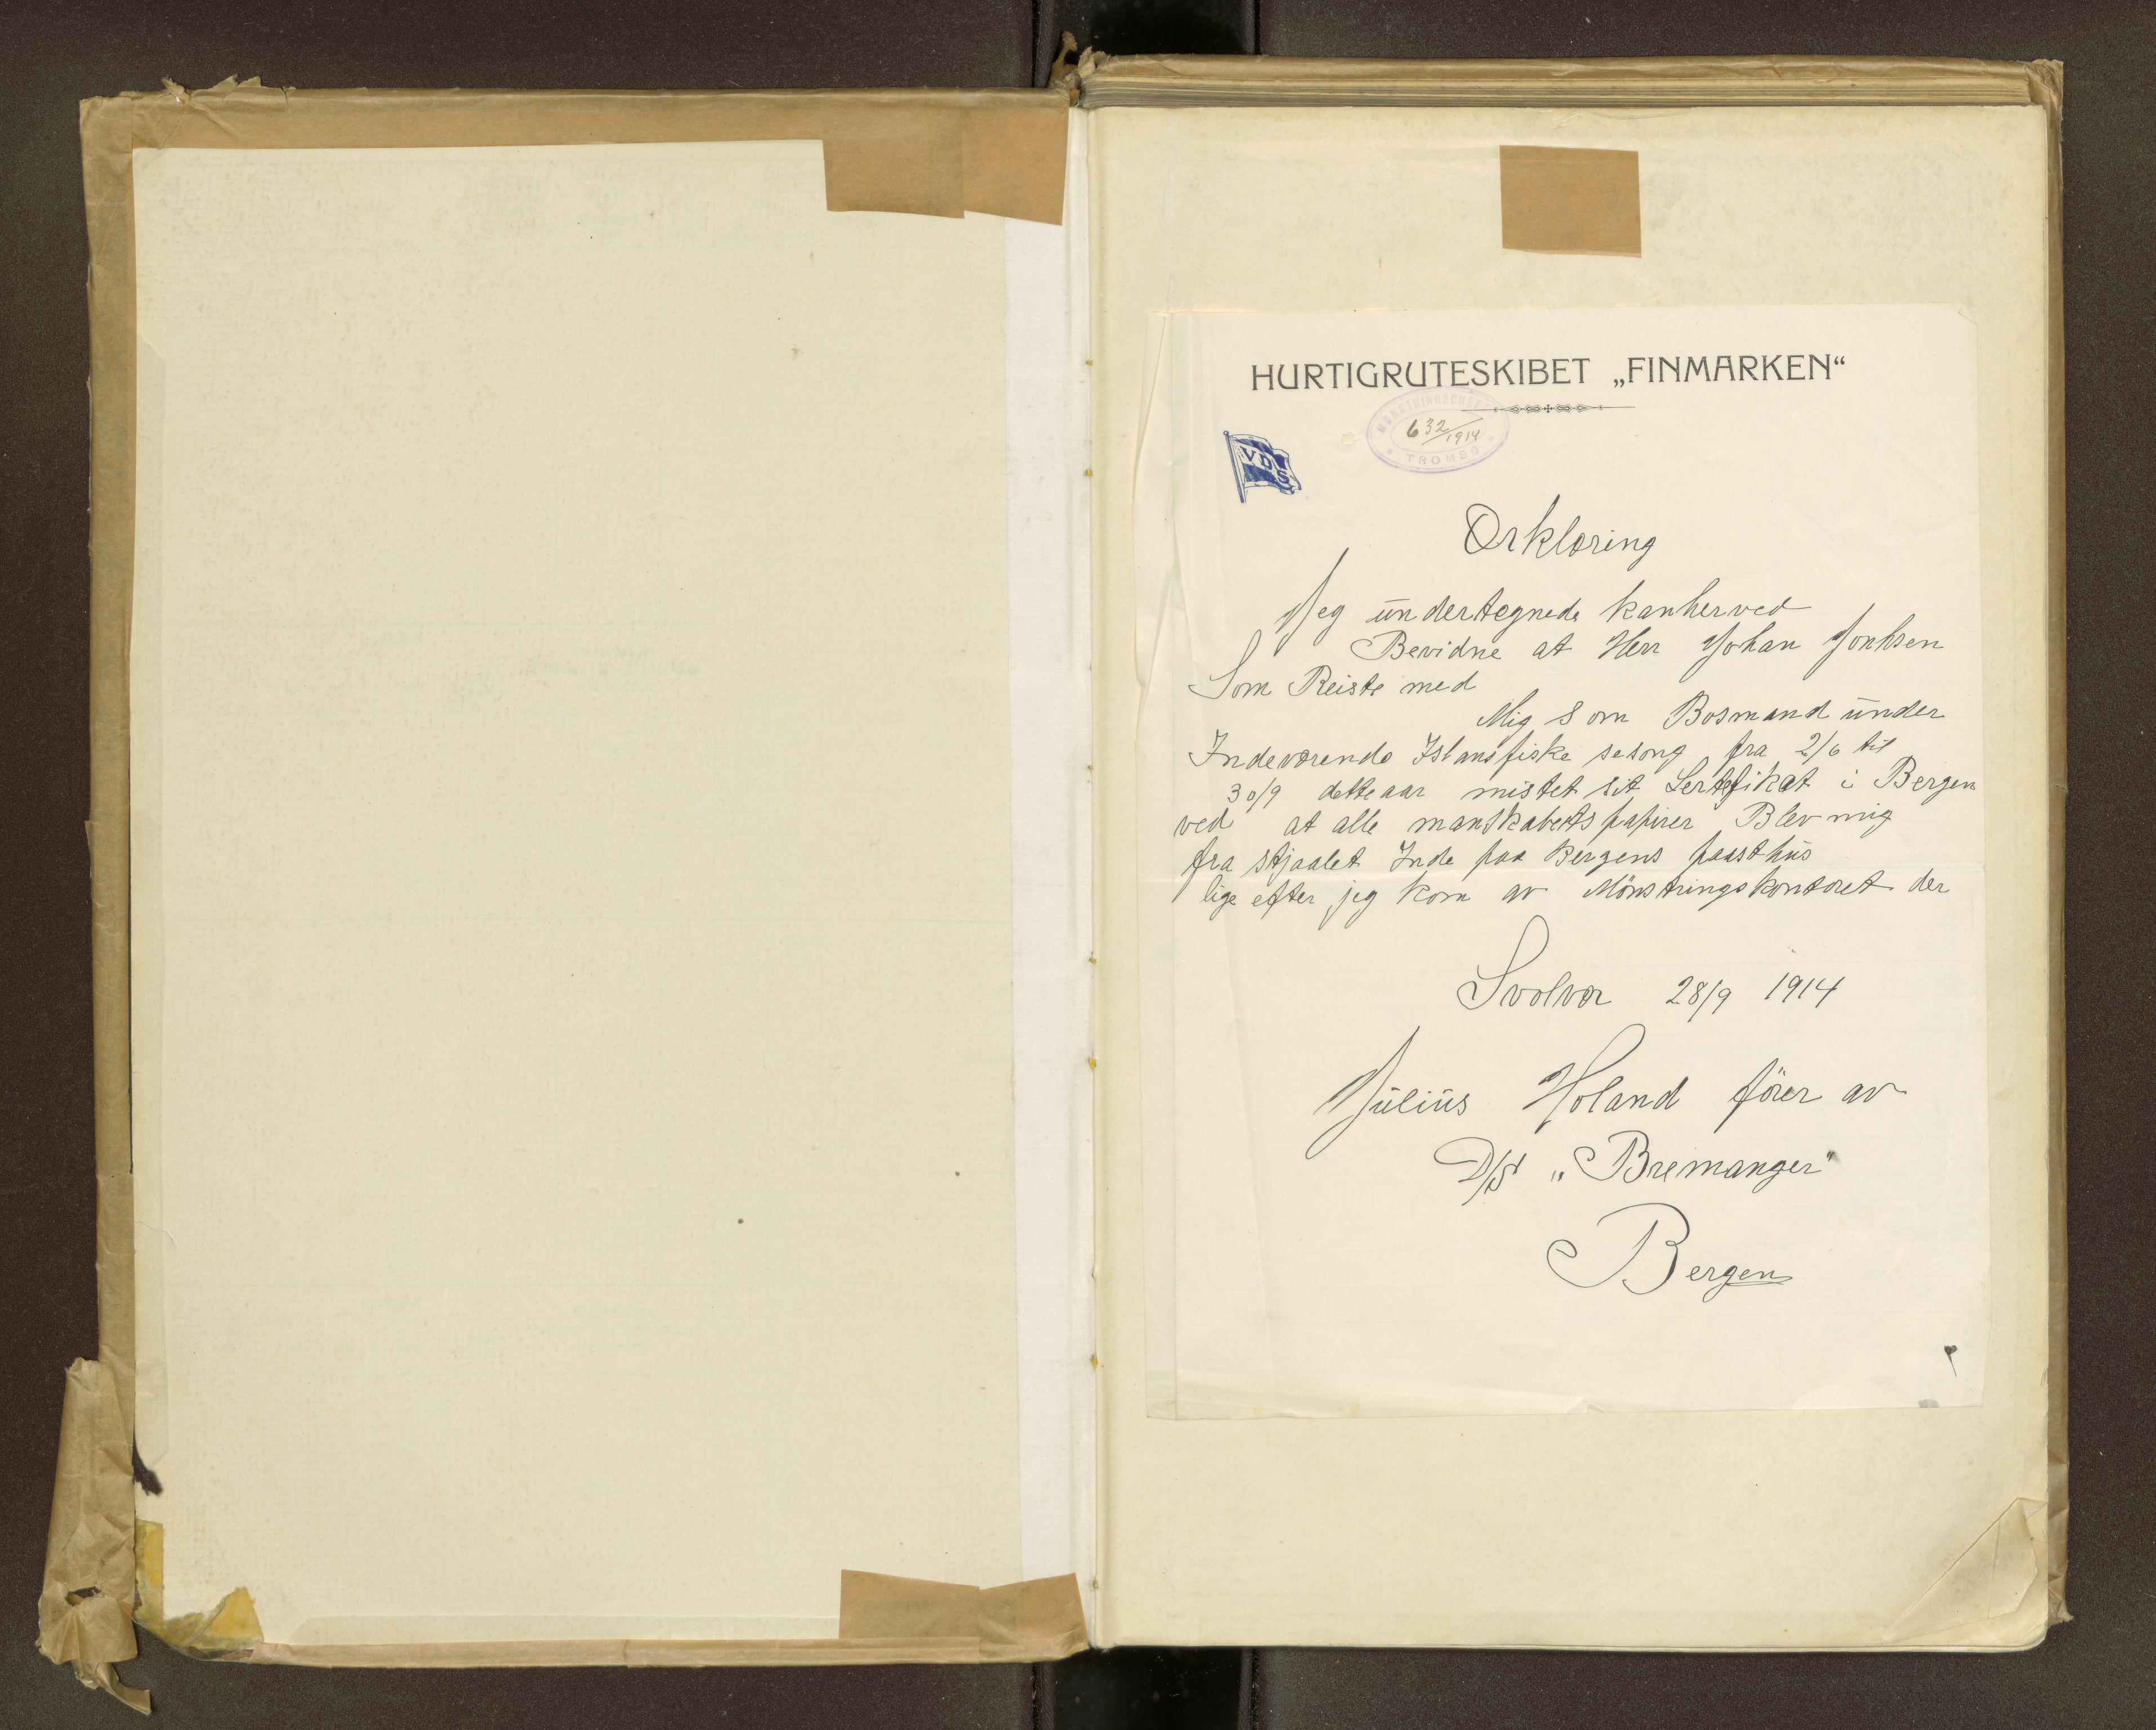 HURTIGRUTESKIBET „FINMARKEN“
MØNSTRINGSCHEFEN
632/1914
TROMSØ
VDS
Erklæring
Jeg undertegnede kanherved
Bevidne at Herr Johan Jonhsen
Som Reiste med
Mig som Bosmand under
Indeværende Islansfiske sesong fra 2/6 til
30/9 detteaar mistet sit Sertefikat i Bergen
ved at alle manskabets papirer Blev mig
fra stjaalet Inde paa Bergens paasthus
lige efter jeg kom av Mönstringskontoret der
Svolvær 28/9 1914
Julius Holand förer av
D/S „Bremanger“
Bergen